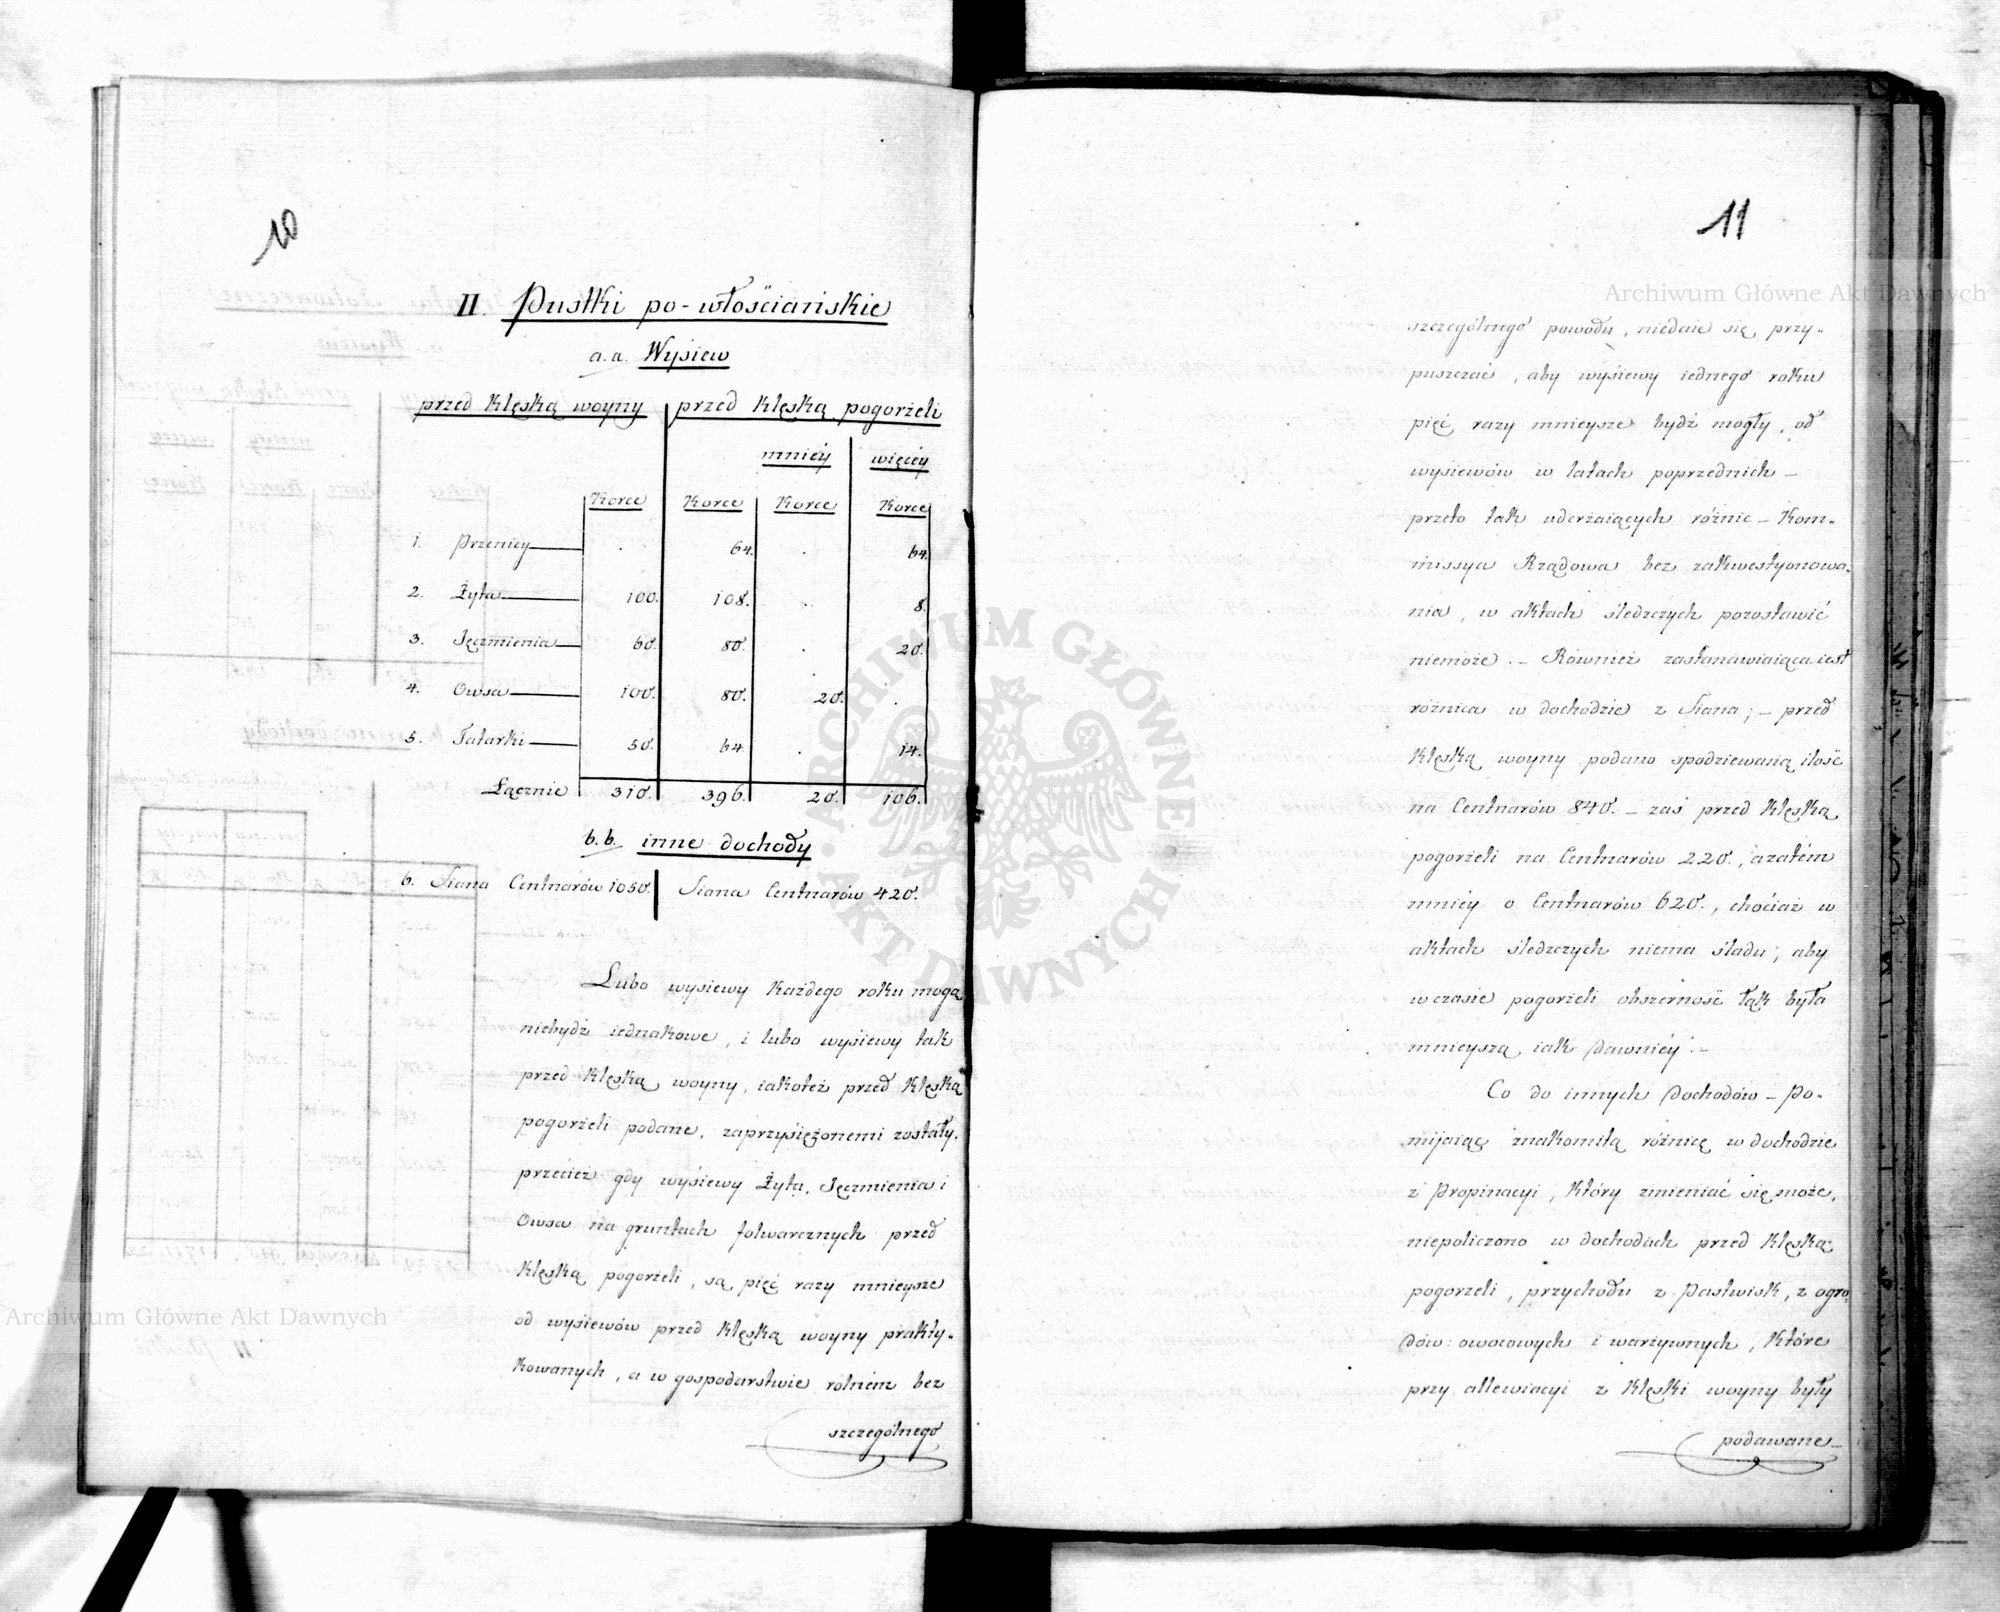 10
II. Pustki po-włościańskie
a.a. Wysiew
przed klęską woyny przed klęską pogorzeli
mniéy więcéy
Korce Korce Korce Korce
1. Pszenicy . 64. . 64.
2. Żyta 100. 108. . 8.
3. Jęczmienia 60. 80. . 20.
4. Owsa 100. 80. 20. .
5. Tatarki 50. 64. . 14.
Łącznie 310. 396. 20. 106.
b.b. inne dochody
6. Siana Centnarów 1050. Siana Centnarów 420.
Lubo wysiewy każdego roku mogą
niebydź iednakowe, i lubo wysiewy tak
przed klęską woyny, iakoteż przed klęską
pogorzeli podane, zaprzysiężonemi zostały,
przecież gdy wysiewy Żyta, Jęczmienia i
Owsa na gruntach folwarcznych przed
klęską pogorzeli, są pięć razy mnieysze
od wysiewów przed klęską woyny prakty-
kowanych, a w gospodarstwie rolném bez
szczególnego
11
szczególnego powodu, niedaie się przy-
puszczać, aby wysiewy iednego roku
pięć razy mnieysze bydź mogły, od
wysiewów w latach poprzednich –
przeto tak uderzaiących różnic – Kom-
missya Rządowa bez zakwestyonowa-
nia, w aktach śledczych pozostawić
niemoże. – Również zastanawiaiąca iest
różnica w dochodzie z Siana; – przed
klęską woyny podano spodziewaną ilość
na Centnarów 840. – zaś przed klęską
pogorzeli na Centnarów 220., azatém
mniey o Centnarów 620., chociaż w
aktach śledczych niema śladu, aby
w czasie pogorzeli obszerność łąk była
mnieyszą iak dawniéy. –
Co do innych dochodów – po-
mijaiąc znakomitą różnicę w dochodzie
z Propinacyi, który zmieniać się może,
niepoliczono w dochodach przed klęską
pogorzeli, przychodu z Pastwisk, z ogro
dów owocowych i warzywnych, które
przy allewiacyi z klęski woyny były
podawane –
Archiwum Główne Akt Dawnych
Archiwum Główne Akt Dawnych
ARCHIWUM GŁÓWNE AKT DAWNYCH